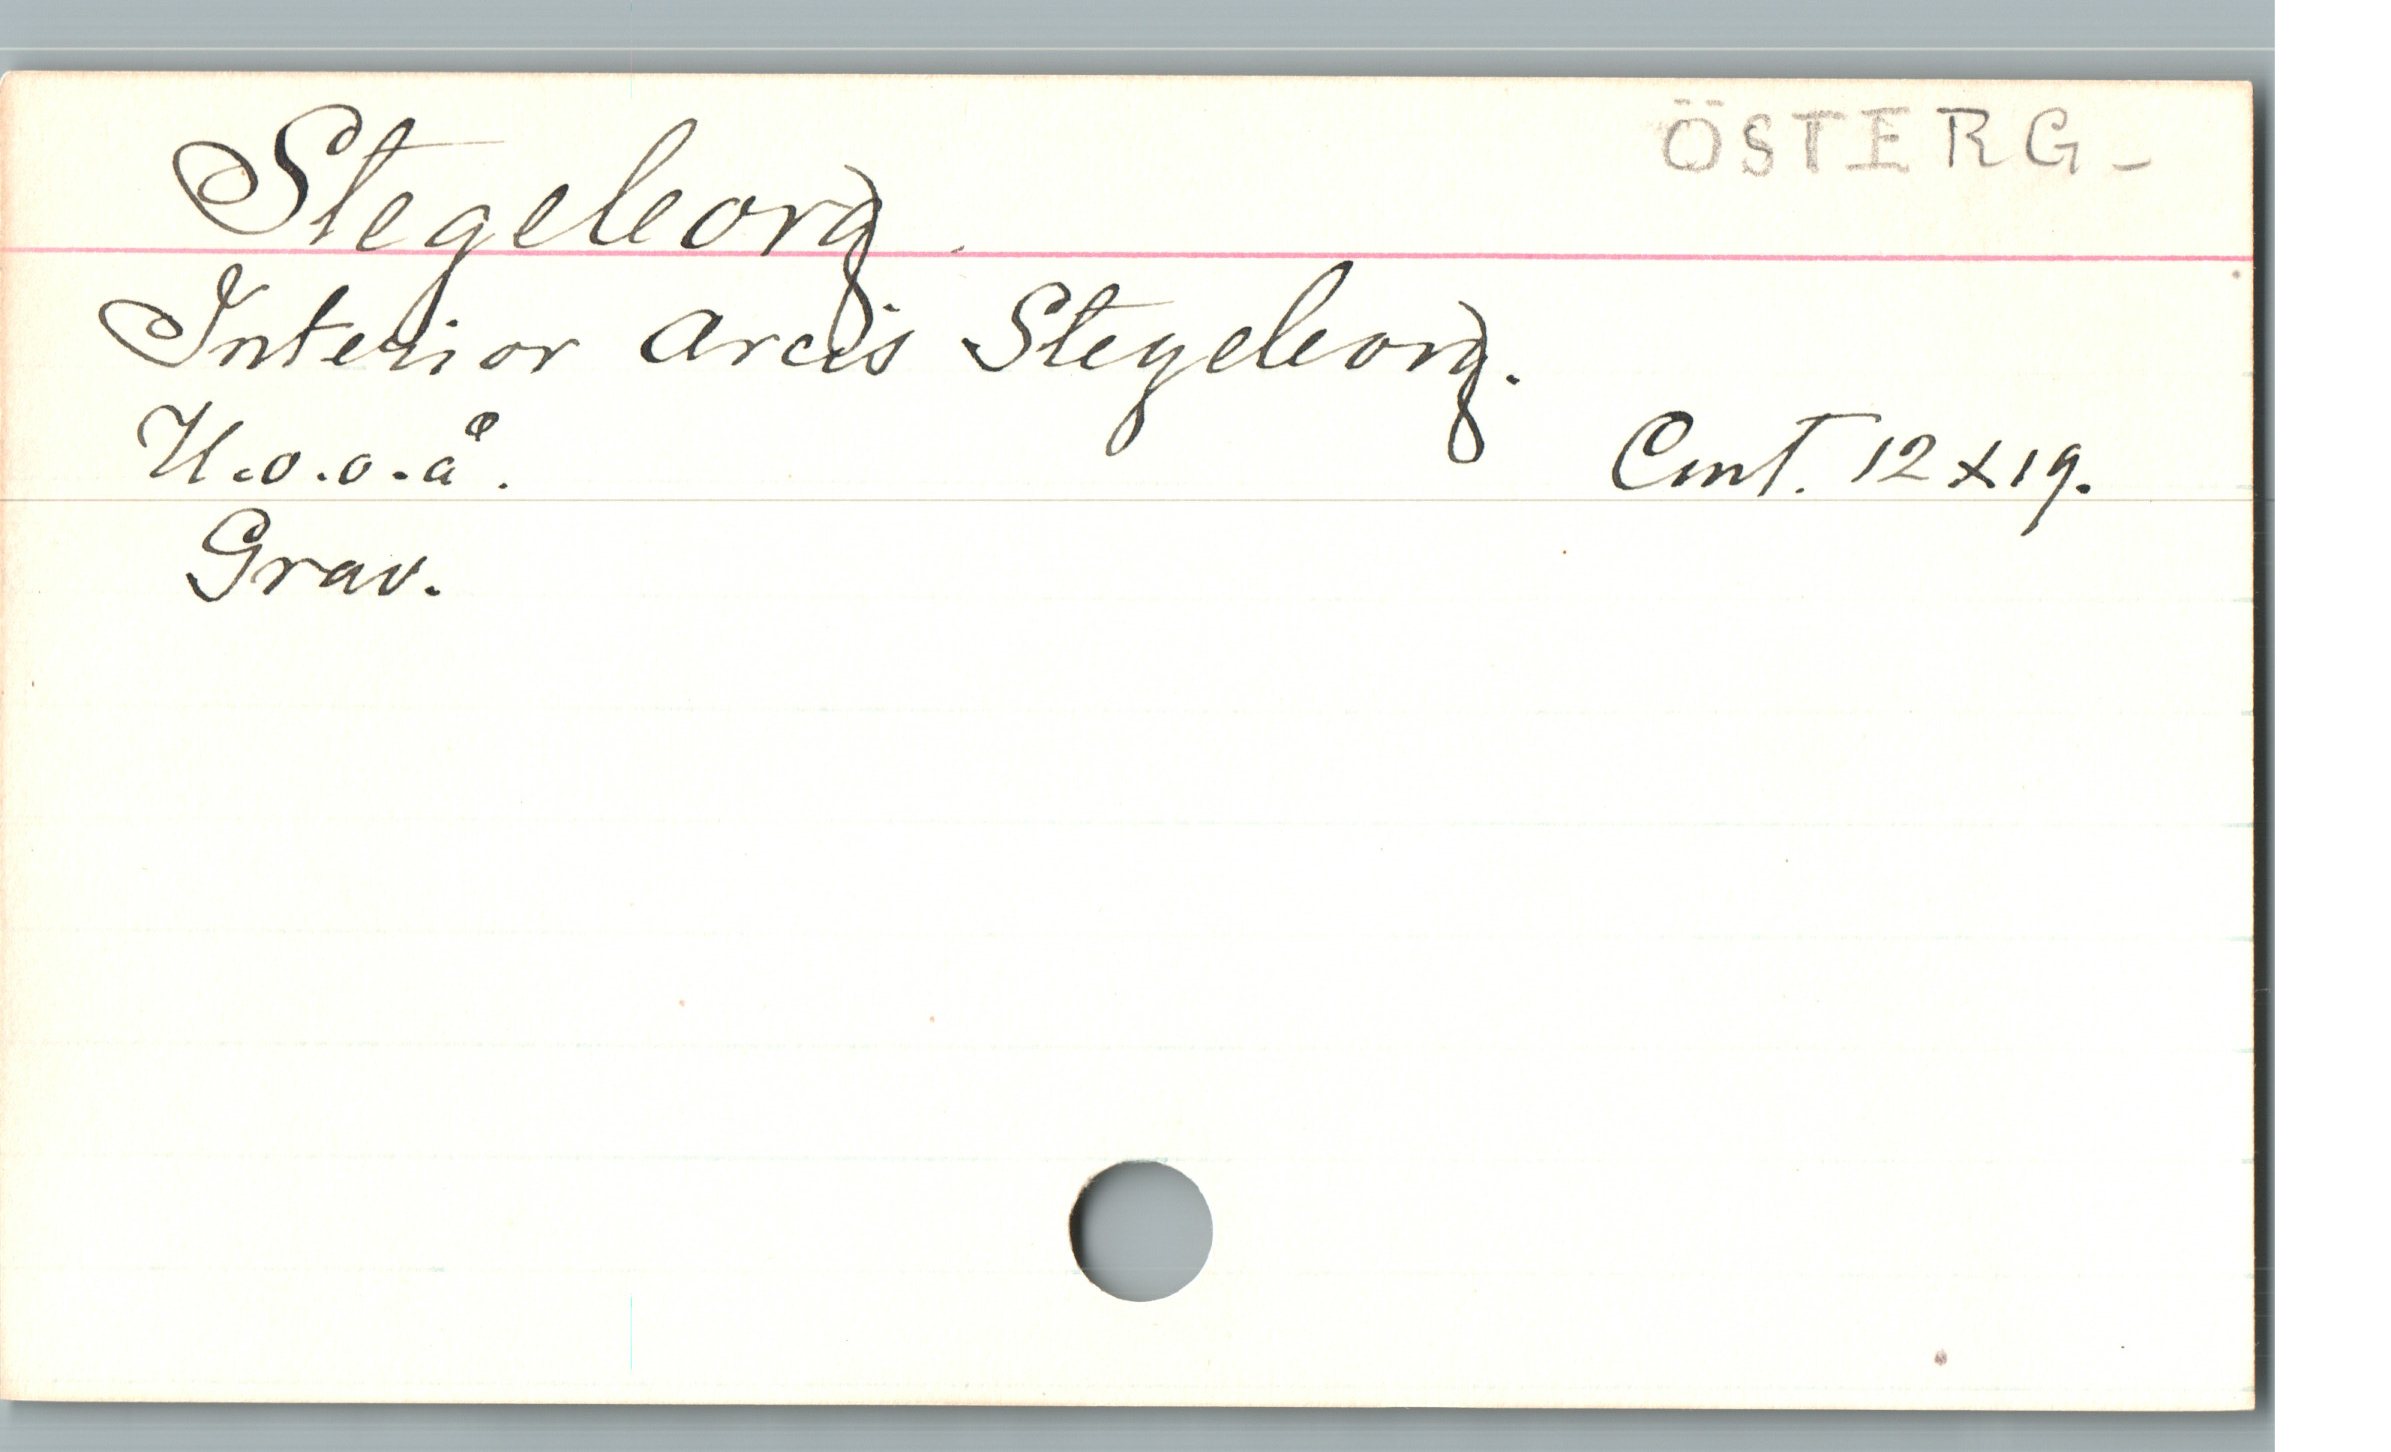 Stegeborg. ÖSTERG-
Interior arcis Stegeborg.
U.o.o.å. Cmt. 12x19.
Grav.